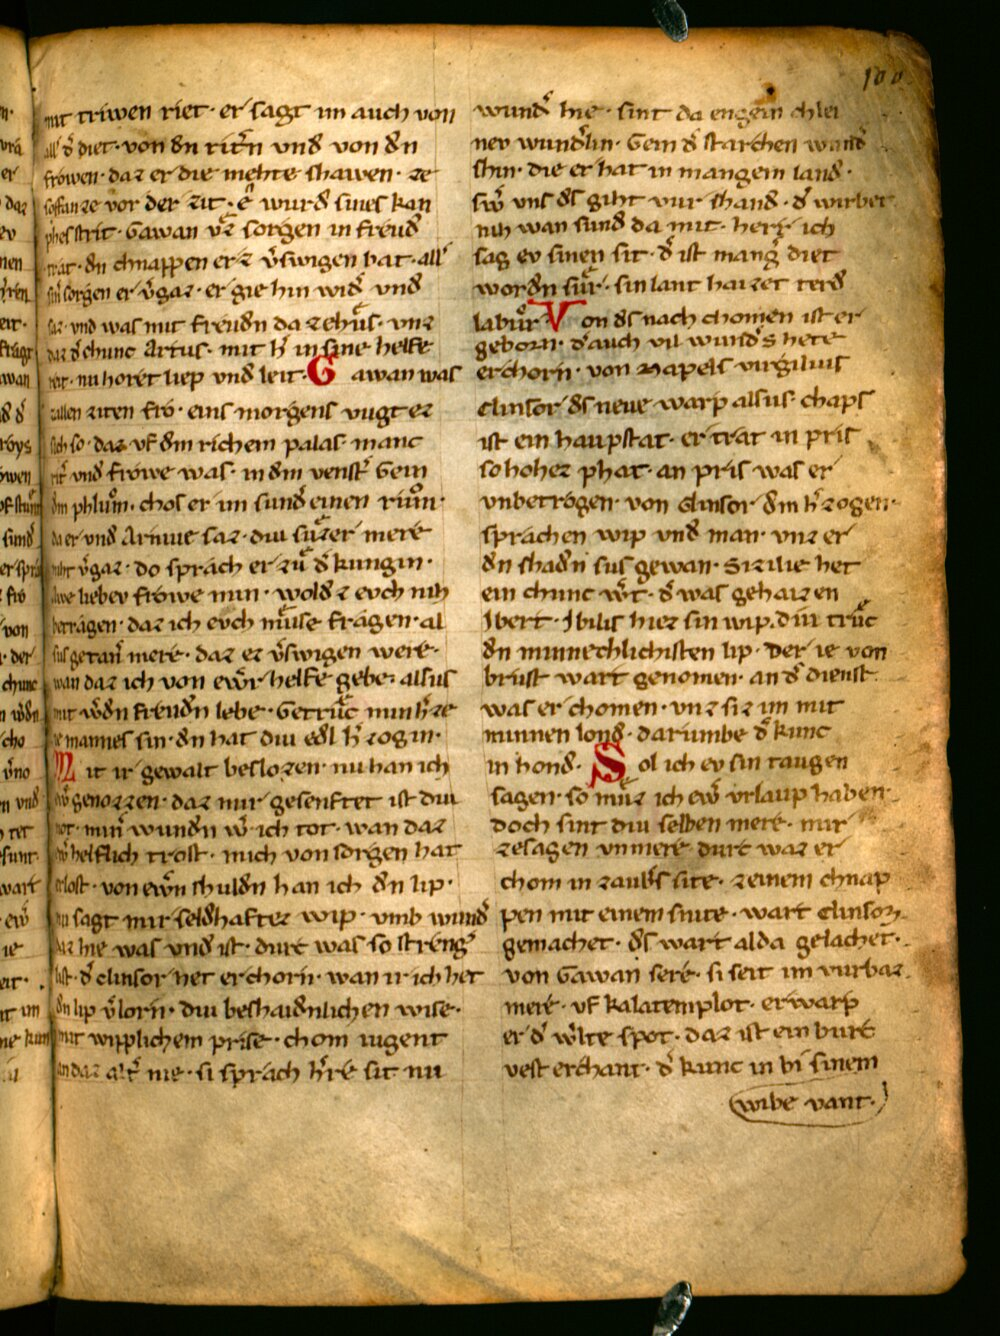 100
mit triwen riet· er sagt im auch von
all d̄ diet· von dn rit̄n vnd von dn
frowen· daz er die mehte shawen· ze
soffanze vor der zit· ê wurd sines kan
phes strit· Gawan vͤz sorgen in freud
trat· dn chnappen er z v̄swigen bat· all
sin̄ sorgen er v̄gaz· er gie hin wid̄ vnd
saz· vnd was mit freudn da zehuͤs· vnz
daz d̄ chunc Artus· mit h̄ in sine helfe
reit· nu horet liep vnd leit· Gawan was
zallen ziten fro· eins morgens vugt ez
sich so· daz vf dm richem palas· manc
rit̄ vnd frowe was· in dm venst̄ Gein
dm phlum· chos er im sund̄ einen rum·
da er vnd Arniue saz· diu suͤzer mere
niht v̄gaz· do sprach er zuͤ d̄ kungin·
Awe liebev frowe min· wold z evch nih
betragen· daz ich evch muͤse fragen· al
sus getan̄ mere· daz ez v̄swigen were·
wan daz ich von ew̄r helfe gebe· alsus
mit w̄dn freudn lebe· Getruͤc min h̄ze
ie mannes sin· dn hat diu edl h̄zogin·
Mit ir gewalt beslozen· nu han ich
ew̄ genozzen· daz mir gesenftet ist diu
not· min̄ wundn w̄ ich tot· wan daz
ew̄ helflich trost· mich von sorgen hat
erlost· von ew̄n shuldn han ich dn lip·
nu sagt mir seldhaftez wip· vmb wund̄
daz hie was vnd ist· dure was so strenḡ
list· d̄ clinsor het erchorn· wan ir ich het
dn lip v̄lorn· diu beshaidnlichen wise·
mit wipplichem prise· chom iugent
an daz alt̄ nie· si sprach h̄re sit nu
wund̄ hie· sint da engein chlei
nev wundlin· Gein d̄ starchen wund̄
shin· die er hat in mangem land·
sw̄ vns ds giht vur shand· d̄ wirbet
nih wan sund da mit· herr ich
sag ev sinen sit· d̄ ist manḡ diet
wordn suͤr· sin lant haizet terd
labuͦr· Von ds nach chomen ist er
geborn· d̄ auch vil wund̄s hete
erchorn· von Napels virgilius
clinsor ds neve warp alsus· chaps
ist ein haupstat· er trat in pris
so hohez phat· an pris was er
vnbetrogen· von clinsor dm h̄zogen·
sprachen wip vnd man· vnz er
dn shadn sus gewan· Sizilie het
ein chunc w̄t· d̄ was gehaizen
Ibert· Ibilis hiez sin wip· diu truͤc
dn minnechlichisten lip· der ie von
brust wart genomen· an d̄ dienst
was er chomen· vnz siz im mit
minnen lond· darumbe d̄ kunc
in hond· Sol ich ev sin taugen
sagen· so muͤz ich ew̄ vrlaup haben·
doch sint diu selben mere· mir
zesagen vnmere· dure waz er
chom in zaub̄s site· zeinem chnap
pen mit einem snite· wart clinsor
gemachet· ds wart alda gelachet·
von Gawan sere· si seit im vurbaz
mere· vf kalatemplot· erwarp
er d̄ w̄lte spot· daz ist ein burc
vest erchant· d̄ kunc in bi sinem
wibe vant·